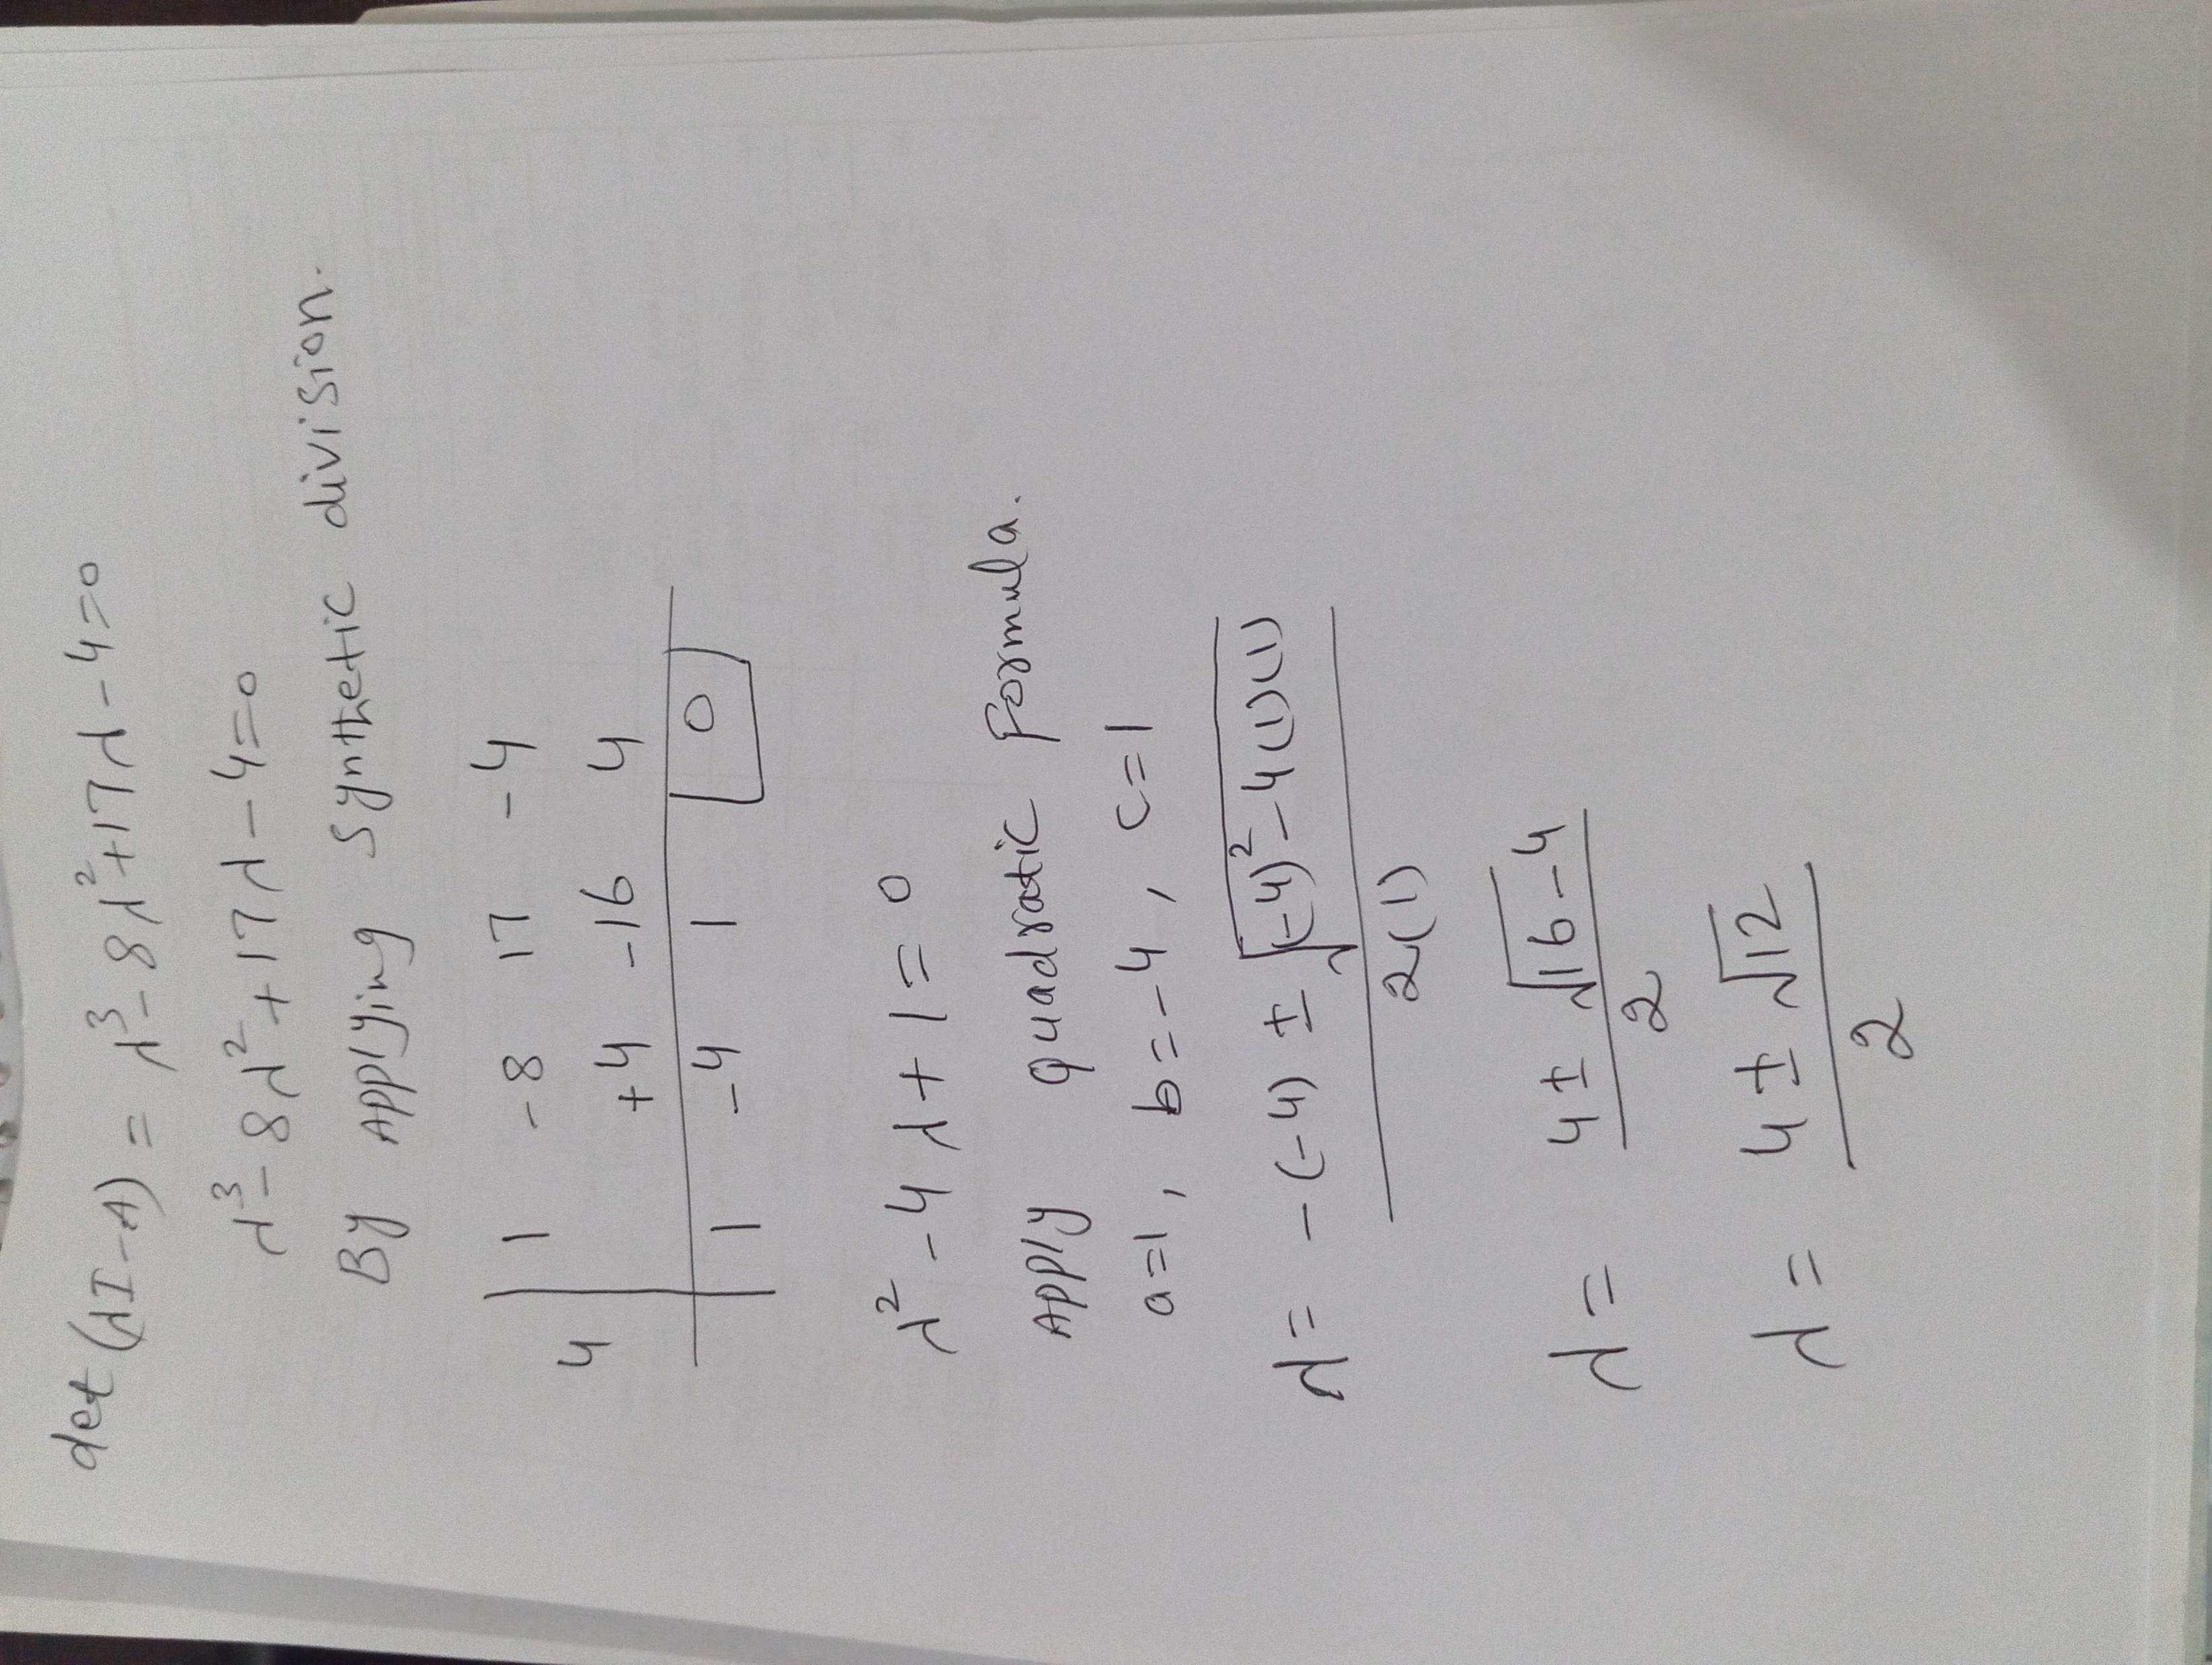 det (λI-A) = λ³-8λ²+17λ-4=0
λ³-8λ²+17λ-4=0
By Applying Synthetic division.
1 -8 17 -4
4 +4 -16 4
1 -4 1 0
λ²-4λ+1=0
Apply quadratic Formula.
a=1, b=-4, c=1
λ= -(-4) ± √(-4)²-4(1)(1)
2(1)
λ= 4± √16-4
2
λ= 4± √12
2